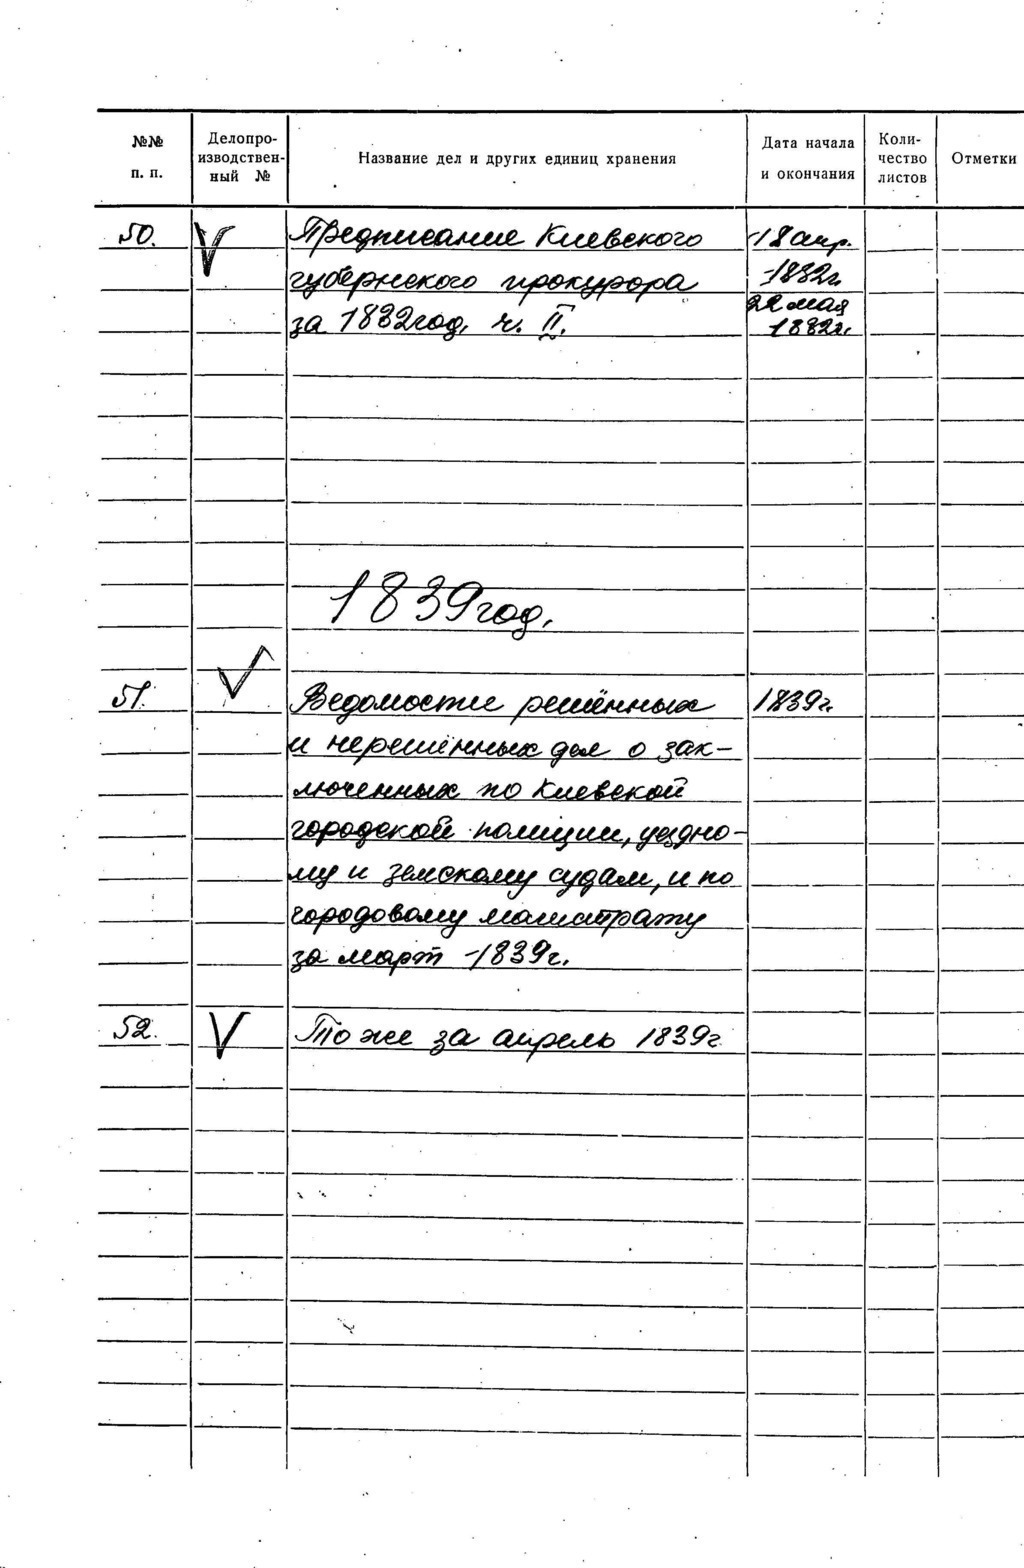 №№ п. п.
Делопро-
изводствен-
ный №
Название дел и других единиц хранения
Дата начала
и окончания
Коли-
чество
листов
Отметки
50. V Предписание Киевского 18 апр.
губернского прокурора 1832г.
за 1832 год, ч. II. 22 мая
1832г.
1839 год.
51. V Ведомости решённых 1839г.
и нерешённых дел о зак-
люченных по Киевской
городской полиции, уездно-
му и земскому судам, и по
городовому магистрату
за март 1839г.
52. V То же за апрель 1839г.